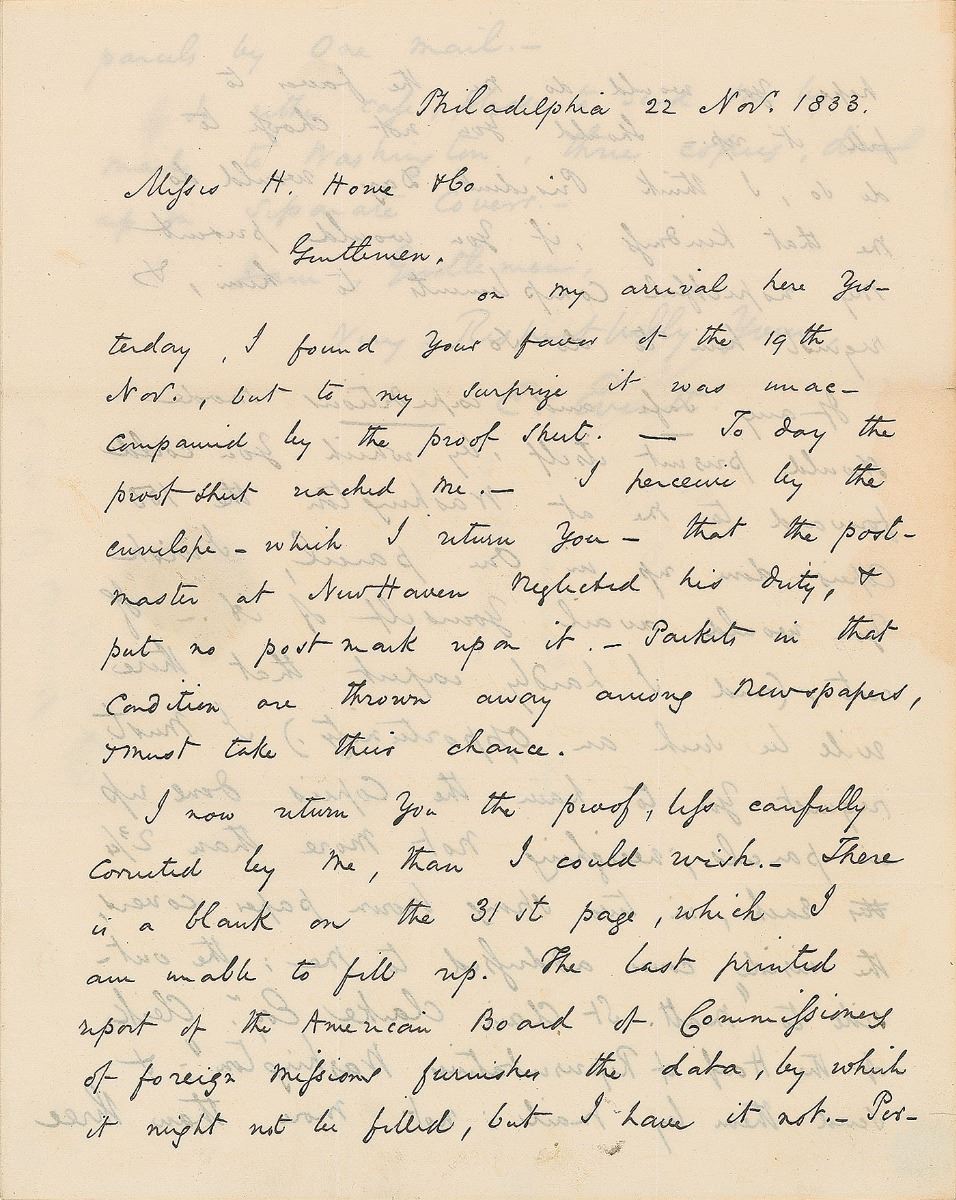 Philadelphia 22 Nov. 1833.
Messrs H. Howe & Co
Gentlemen.
on my arrival here Yes-
terday, I found Your favor of the 19th
Nov., but to my surprize it was unac-
companied by the proof sheet. — To day the
proof sheet reached me. — I perceive by the
envelope – which I return You – that the post-
master at New Haven neglected his duty, &
put no post mark upon it. – Packets in that
Condition are thrown away among newspapers,
& must take their chance.
I now return You the proof, less carefully
corrected by me, than I could wish. – There
is a blank on the 31st page, which I
am unable to fill up. The last printed
report of the American Board of Commissioners
of foreign missions furnishes the data, by which
it might not be filled, but I have it not. – Per-